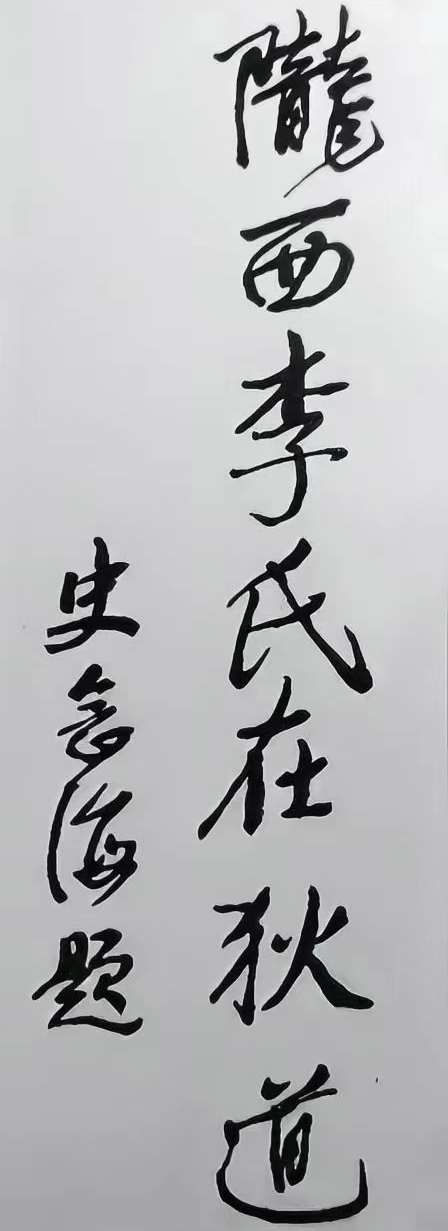 隴西李氏在狄道
史念海題